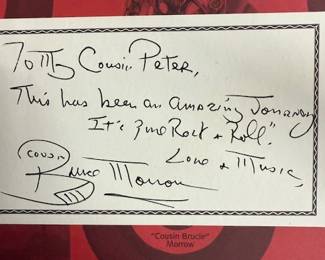 To My Cousin Peter,
This has been an amazing Journey
It's Rock & Roll".
Love & Music,
Cousin
Bruce Morrow
"Cousin Brucie"
Morrow